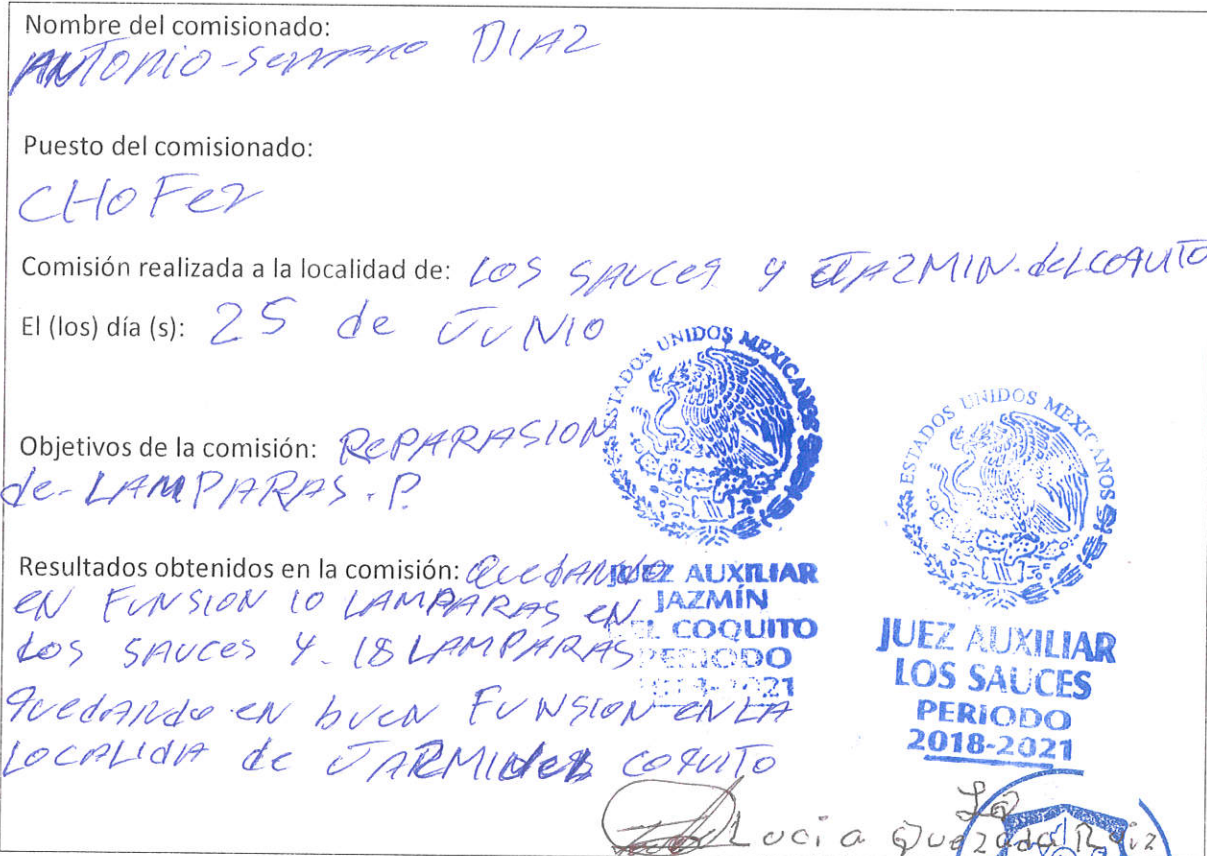 Nombre del comisionado:
ANTONIO-Serrano DIAZ
Puesto del comisionado:
CHOFer
Comisión realizada a la localidad de: LOS SAUCES y JAZMIN.delCOQUITO
El (los) día (s): 25 de JUNIO
Objetivos de la comisión: RePARASION
de-LAMPARAS.P.
Resultados obtenidos en la comisión: QuedANdo
eN FUNSION 10 LAMPARAS eN
LOS SAUCes Y-18 LAMPARAS
quedANdo eN bueN FUNSION eN LA
LOCALIdA de JARMIN del COQUITO
ESTADOS UNIDOS MEXICANOS
JUEZ AUXILIAR
JAZMÍN
DEL COQUITO
PERIODO
2018-2021
ESTADOS UNIDOS MEXICANOS
JUEZ AUXILIAR
LOS SAUCES
PERIODO
2018-2021
Lucia Quezada